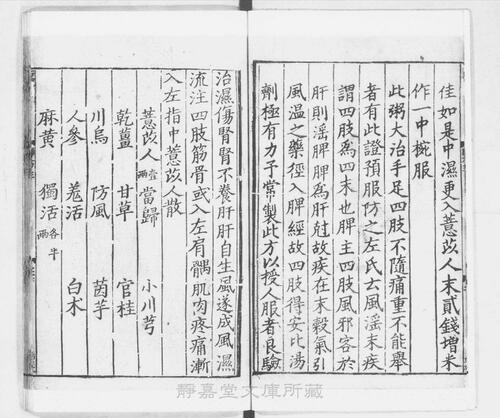 佳如是中濕更入薏苡人末貳錢增米
作一中椀服
此粥大治手足四肢不隨痛重不能舉
者有此證預服防之左氏云風淫末疾
謂四肢為四末也脾主四肢風邪客於
肝則淫脾脾為肝尅故疾在末穀氣引
風温之藥徑入脾經故四肢得安比湯
劑極有力予常製此方以授人服者良驗
治濕傷腎腎不養肝肝自生風遂成風濕
流注四肢筋骨或入左肩髃肌肉疼痛漸
入左指中薏苡人散
薏苡人壹兩 當歸 小川芎
乾薑 甘草 官桂
川烏 防風 茵芋
人參 羗活 白术
麻黄 獨活各半兩
靜嘉堂文庫所藏